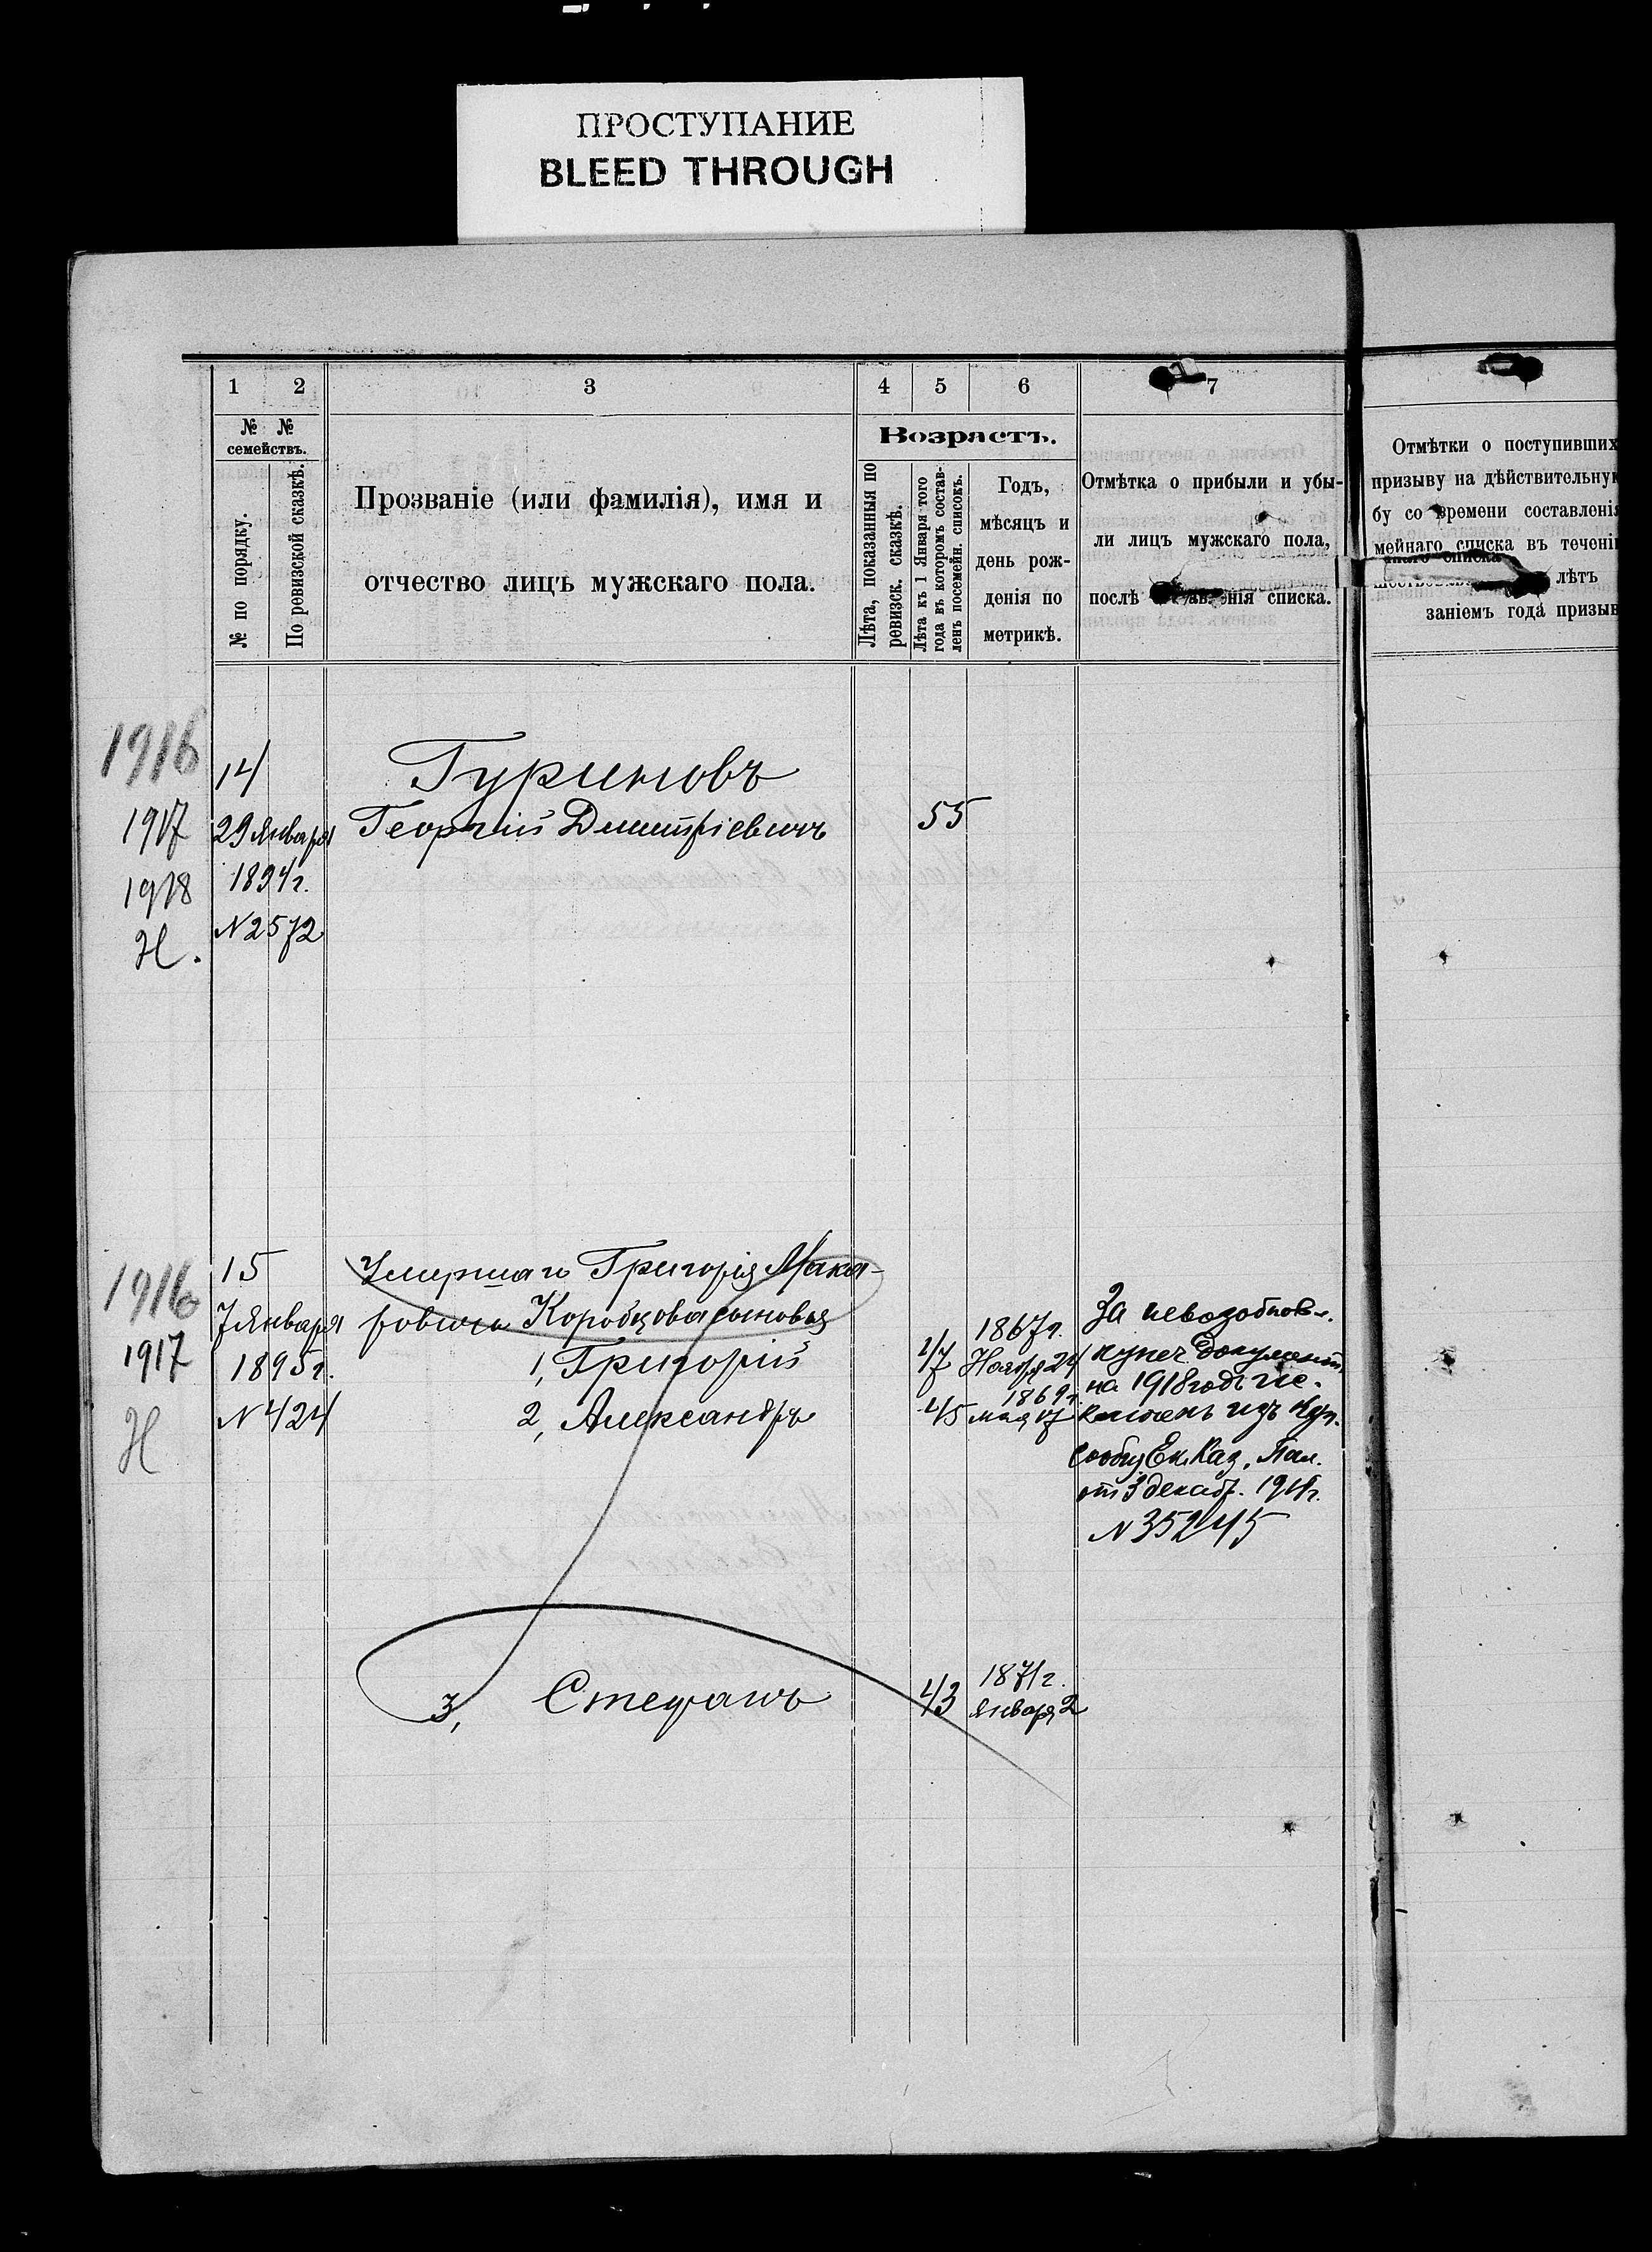 ПРОСТУПАНИЕ
BLEED THROUGH
1 2 3 4 5 6 7
№ № семействъ.
№ по порядку.
По ревизской сказкѣ.
Прозваніе (или фамилія), имя и
отчество лицъ мужскаго пола.
Возрастъ.
Лѣта, показанныя по
ревизск. сказкѣ.
Лѣта къ 1 Января того
года въ которомъ состав-
ленъ посемейн. списокъ.
Годъ,
мѣсяцъ и
день рож-
денія по
метрикѣ.
Отмѣтка о прибыли и убы-
ли лицъ мужскаго пола,
послѣ списка.
Отмѣтки о поступивших
призыву на дѣйствительну
бу со времени составленія
мейнаго списка въ течені
лѣтъ
заніемъ года призыв
1916
14 Гуриновъ
1917 29 Января Георгій Димитріевичъ 55
1918 1894г.
Н. №2572
1916 15 Умершаго Григорія Мака-
7 Января ровича Коробцова сыновья
1917 1895г. 1, Григорій 47 1867г. Ноября 24
Н №424 2, Александръ 45 1869г. мая 17
За невозобнов.
купеч. документ.
на 1918 годъ ис-
ключенъ изъ куп.
сообщ Ек. Каз. Пал.
от 3 декабр. 1918г.
№35245
3, Стефанъ 43 1871г.
Января 2